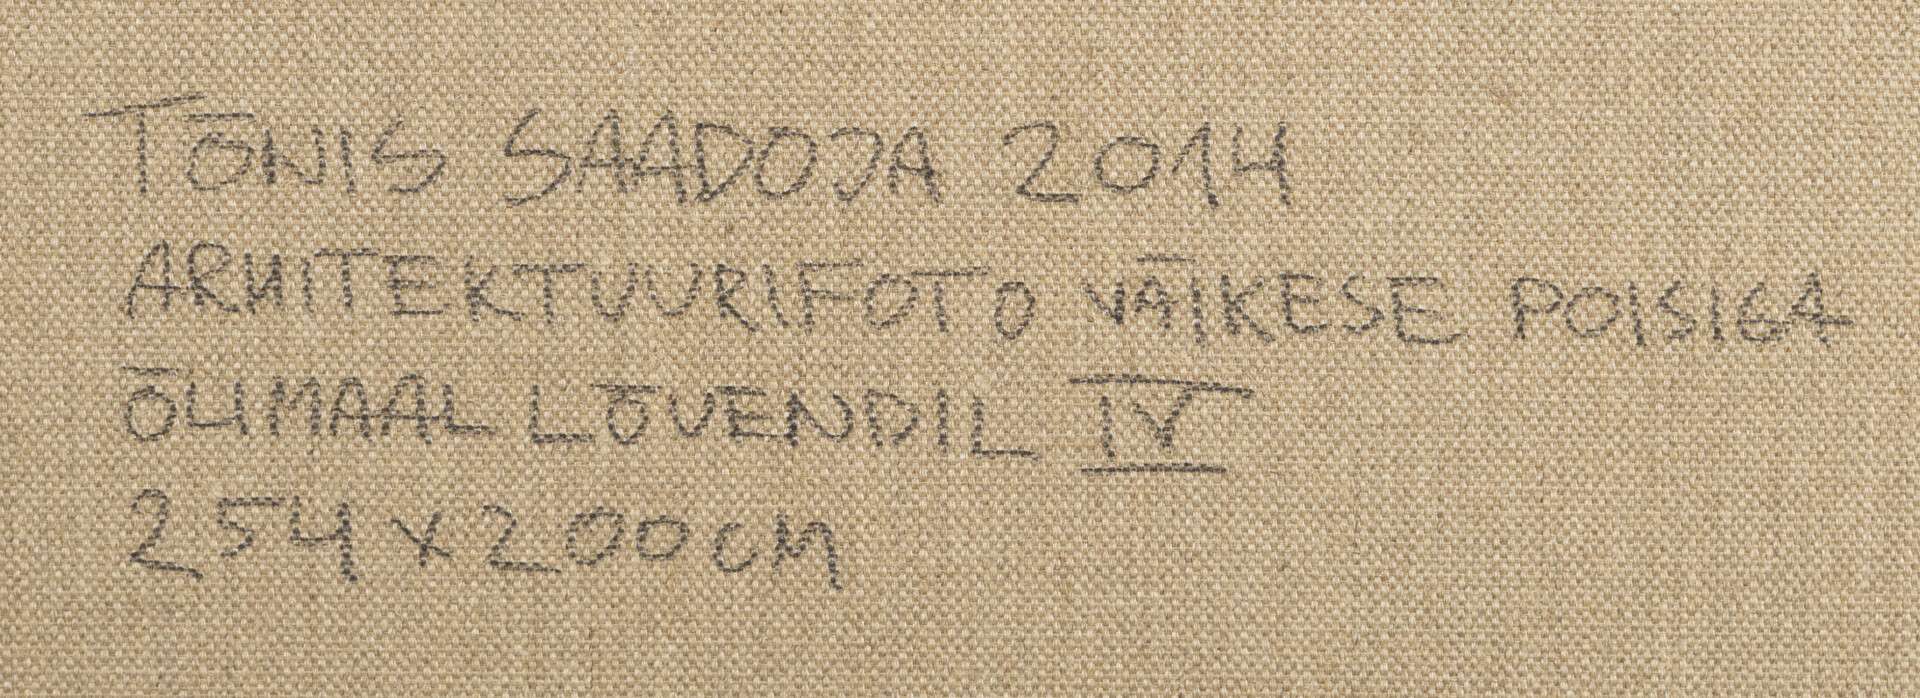 TÕNIS SAADOJA 2014
ARHITEKTUURIFOTO VÄIKESE POISIGA
ÕLIMAAL LÕUENDIL IV
254 x 200 CM